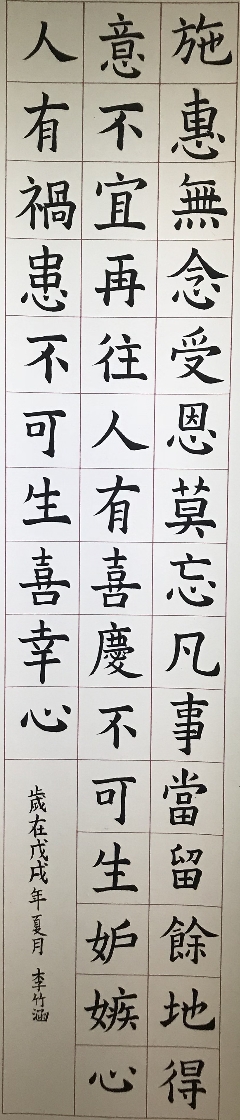 施惠無念受恩莫忘凡事當留餘地得
意不宜再往人有喜慶不可生妒嫉心
人有禍患不可生喜幸心
歲在戊戌年夏月 李竹涵